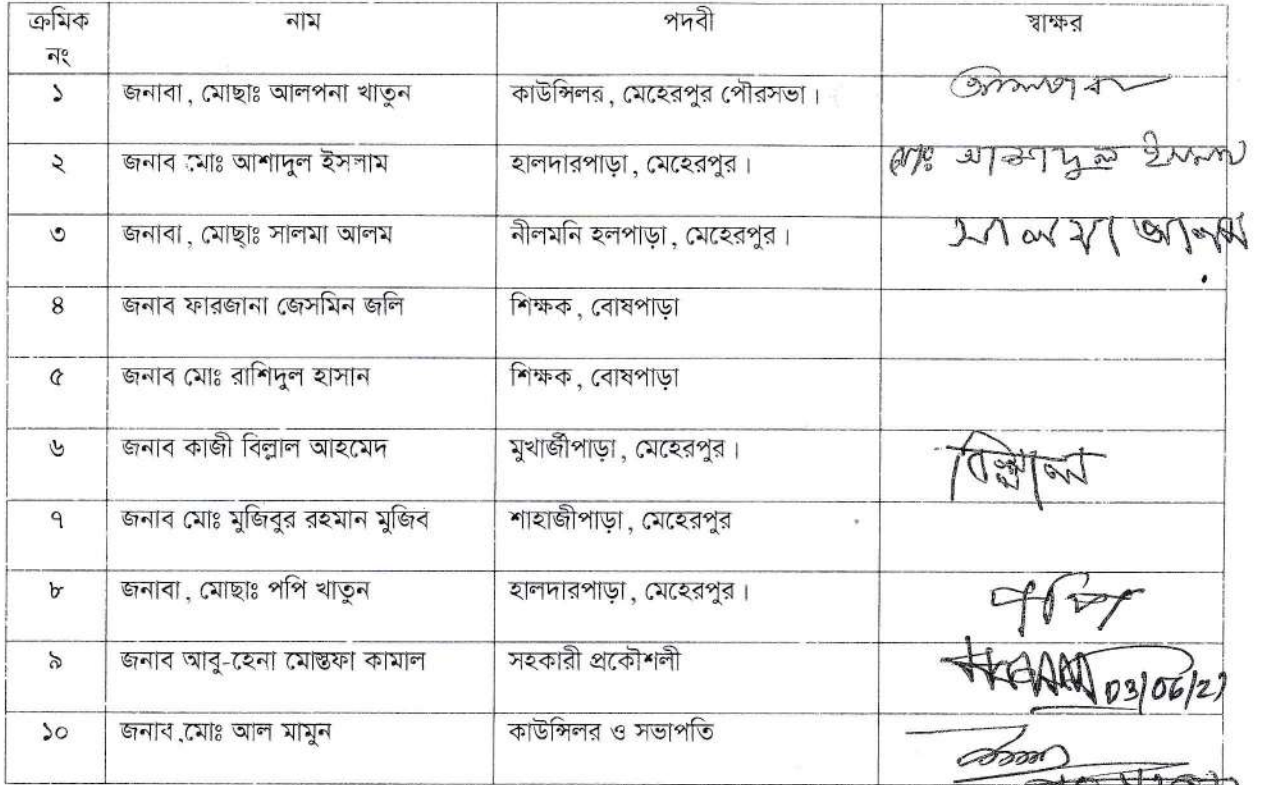 ক্রমিক নং নাম পদবী স্বাক্ষর
১ জনাবা, মোছাঃ আলপনা খাতুন কাউন্সিলর, মেহেরপুর পৌরসভা।
২ জনাব মোঃ আশাদুল ইসলাম হালদারপাড়া, মেহেরপুর। মোঃ আশাদুল ইসলাম
৩ জনাবা, মোছাঃ সালমা আলম নীলমনি হলপাড়া, মেহেরপুর। সালমা আলম
৪ জনাব ফারজানা জেসমিন জলি শিক্ষক, বোষপাড়া
৫ জনাব মোঃ রাশিদুল হাসান শিক্ষক, বোষপাড়া
৬ জনাব কাজী বিল্লাল আহমেদ মুখার্জীপাড়া, মেহেরপুর। বিল্লাল
৭ জনাব মোঃ মুজিবুর রহমান মুজিব শাহাজীপাড়া, মেহেরপুর
৮ জনাবা, মোছাঃ পপি খাতুন হালদারপাড়া, মেহেরপুর। পপি
৯ জনাব আবু-হেনা মোস্তফা কামাল সহকারী প্রকৌশলী 03/06/21
১০ জনাব মোঃ আল মামুন কাউন্সিলর ও সভাপতি